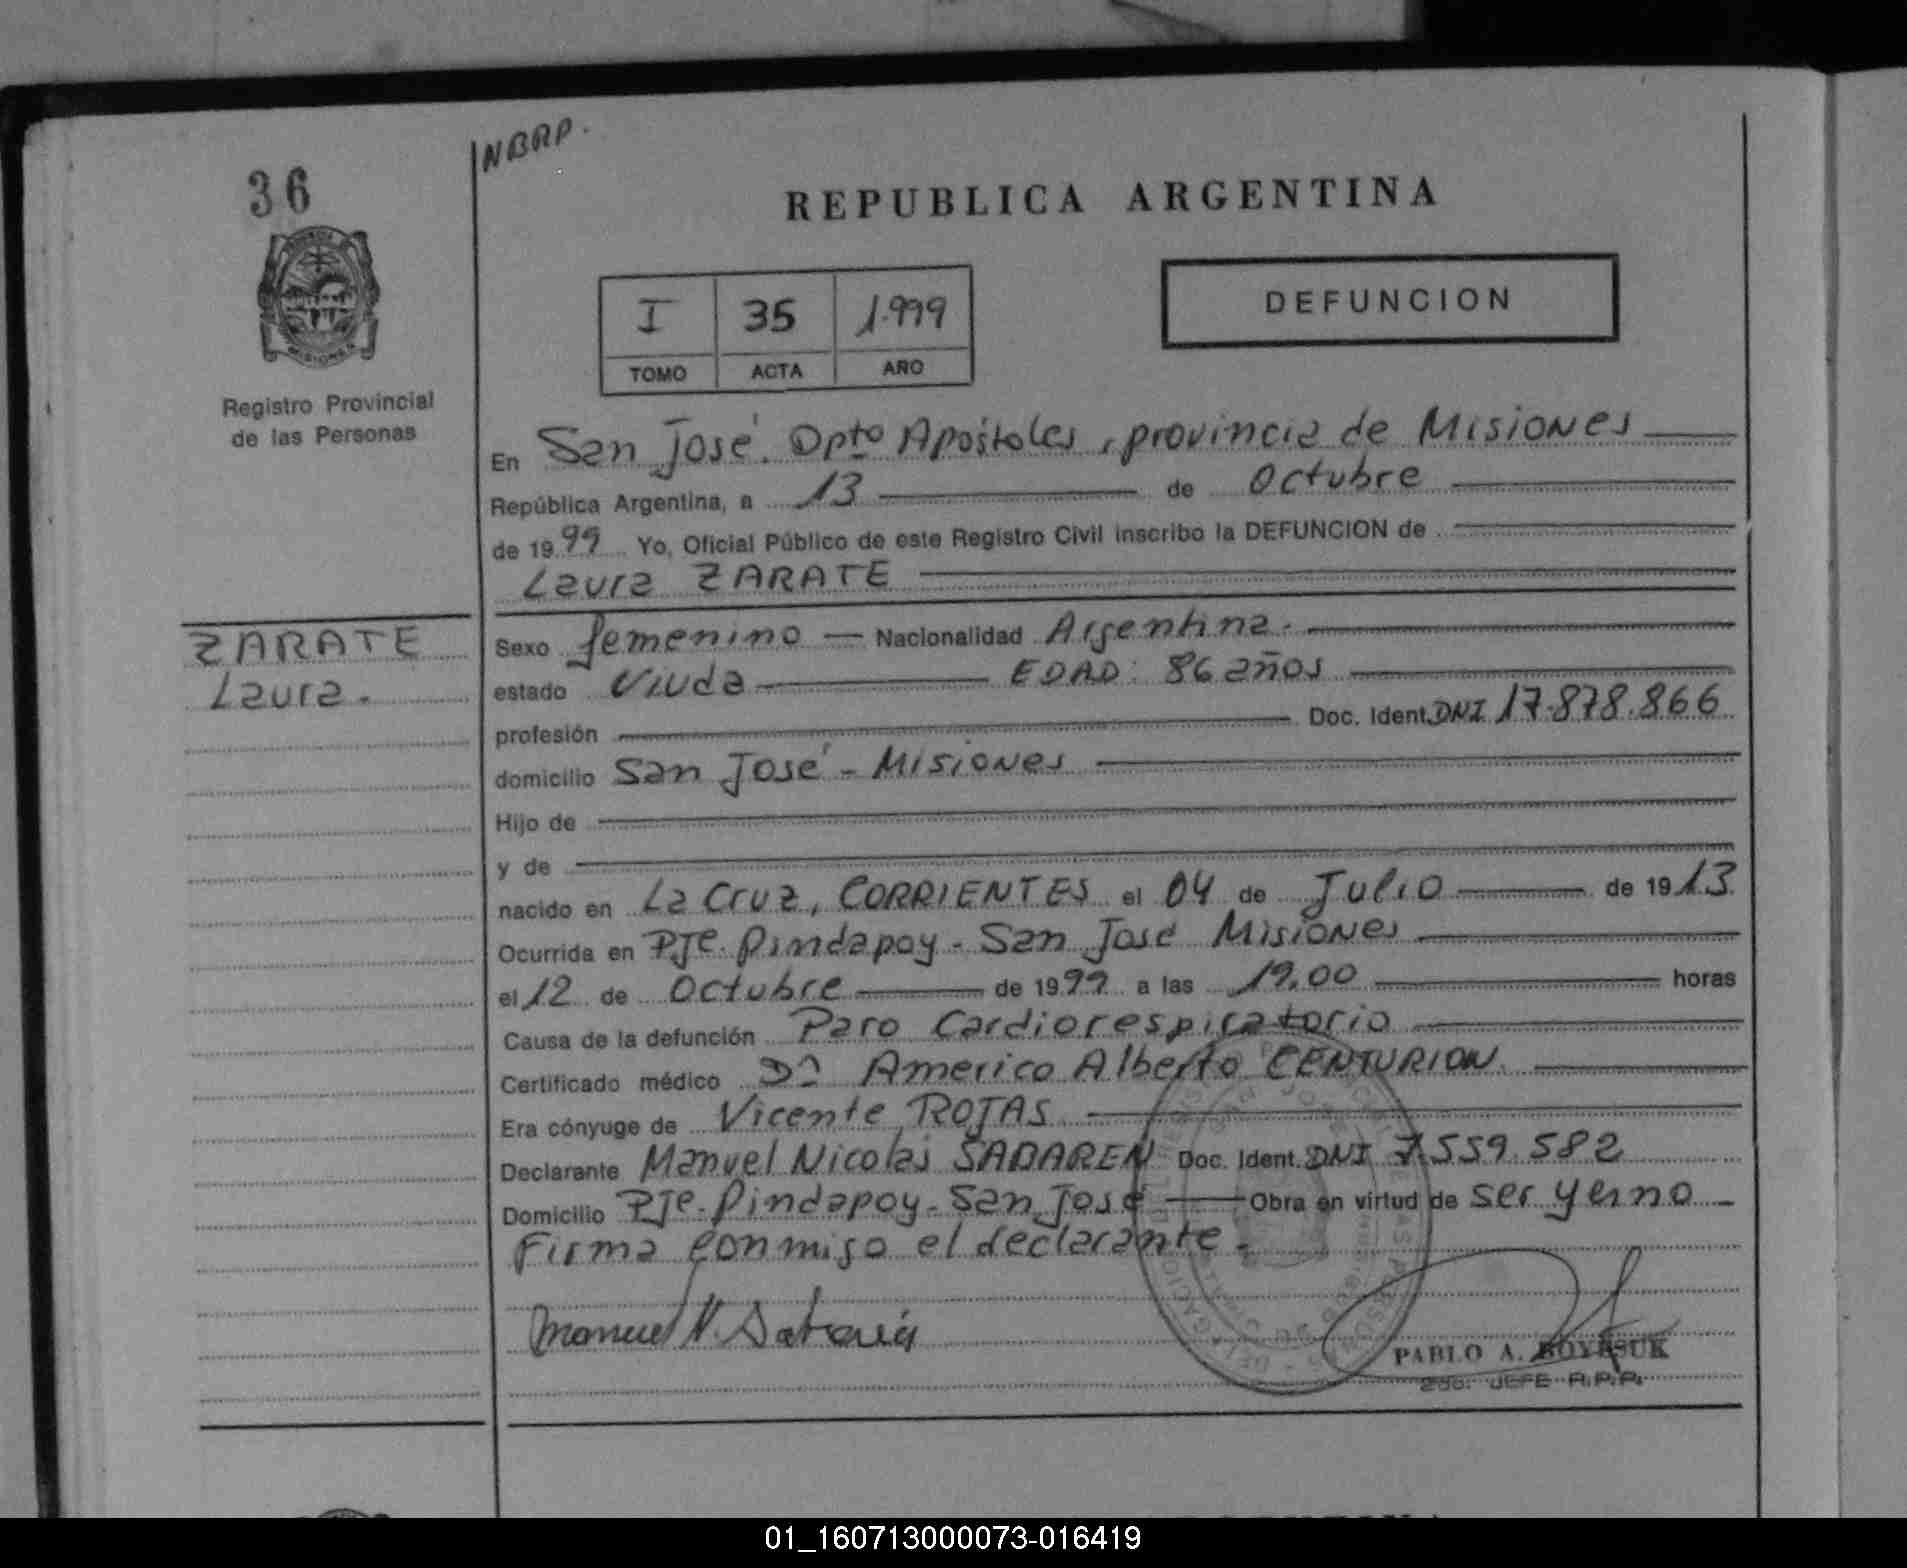 36
NBRP.
REPUBLICA ARGENTINA
MISIONES
Registro Provincial
de las Personas
I 35 1.999
TOMO ACTA AÑO
DEFUNCION
En San José. Dpto Apóstoles, provincia de Misiones
República Argentina, a 13 de Octubre
de 1999 Yo, Oficial Público de este Registro Civil inscribo la DEFUNCION de
Laura ZARATE
ZARATE
Laura.
Sexo femenino Nacionalidad Argentina.
estado Viuda EDAD: 86 años
profesión Doc. Ident. DNI 17.878.866
domicilio San José - Misiones
Hijo de
y de
nacido en La Cruz, CORRIENTES el 04 de Julio de 1913.
Ocurrida en Pje. Pindapoy - San José Misiones
el 12 de Octubre de 1999 a las 19,00 horas
Causa de la defunción Paro Cardiorespiratorio
Certificado médico Dr Americo Alberto CENTURION.
Era cónyuge de Vicente ROJAS
Declarante Manuel Nicolás SABAREN Doc. Ident. DNI 7.559.582
Domicilio Pje. Pindapoy - San José Obra en virtud de ser yerno
Firma conmigo el declarante.
Manuel N.
PABLO A.
2do. JEFE R.P.P.
01_160713000073-016419